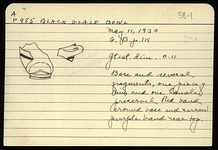 A
P 985 BLACK GLAZE BOWL
May 11, 1937
G, p. 115
Grtst dim. 0.11
Base and several
fragments, one piece of
and one handle
preserved. Red band
around base and narrow
purple band near top.